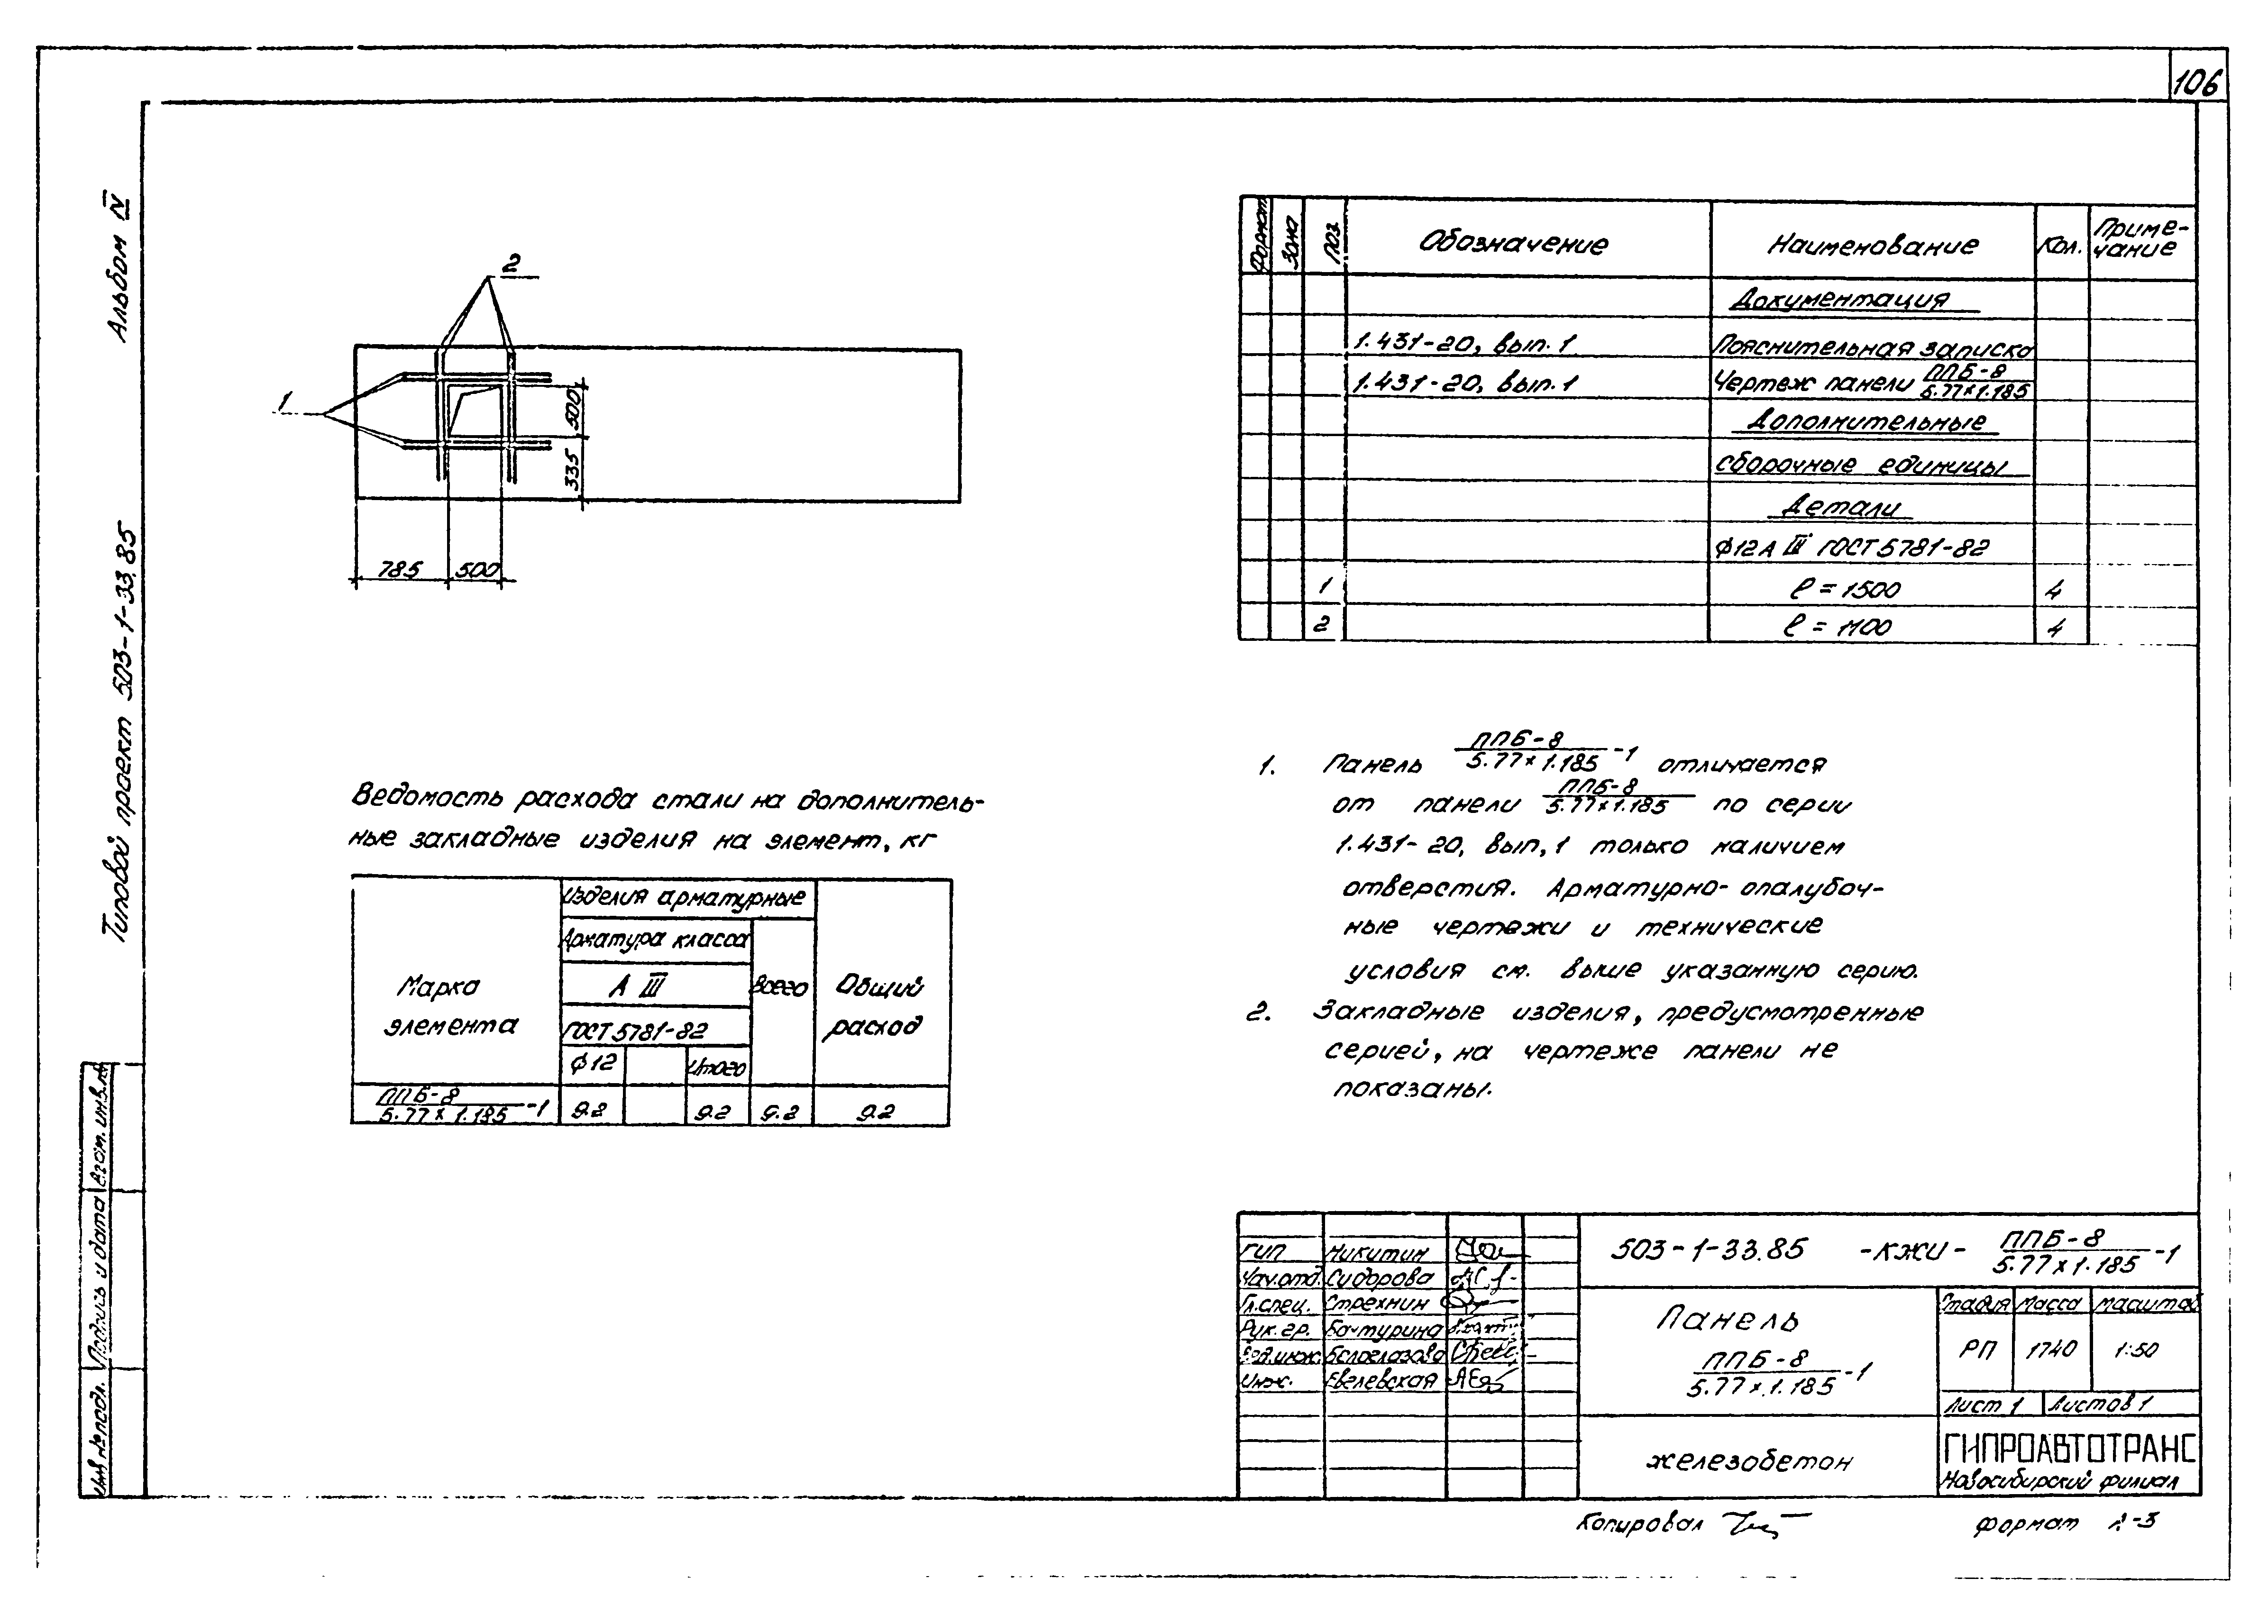 106
Альбом IV
Типовой проект 503-1-33.85
Взам. инв. №
Подпись и дата
Инв. № подл.
2
1
500
335
785
500
Формат
Зона
Поз.
Обозначение
Наименование
Кол.
Приме-
чание
Документация
1.431-20, вып. 1
Пояснительная записка
1.431-20, вып. 1
Чертеж панели ППБ-8
5.77×1.185
Дополнительные
сборочные единицы
Детали
ф12 А III ГОСТ 5781-82
1 ℓ = 1500 4
2 ℓ = 1100 4
Ведомость расхода стали на дополнитель-
ные закладные изделия на элемент, кг
Марка
элемента
Изделия арматурные
Арматура класса
А III
ГОСТ 5781-82
ф12
Итого
Всего
Общий
расход
ППБ-8
5.77×1.185 -1
9.2 9.2 9.2 9.2
1. Панель ППБ-8
5.77×1.185 -1 отличается
от панели ППБ-8
5.77×1.185 по серии
1.431-20, вып, 1 только наличием
отверстия. Арматурно-опалубоч-
ные чертежи и технические
условия см. выше указанную серию.
2. Закладные изделия, предусмотренные
серией, на чертеже панели не
показаны.
ГИП Никитин
Нач.отд. Сидорова
Гл.спец. Стрехнин
Рук.гр. Бачурина
Вед.инж. Белоглазова
Инж. Евелевская
503-1-33.85 -КЖИ- ППБ-8
5.77×1.185 -1
Панель
ППБ-8
5.77×1.185 -1
Стадия Масса Масштаб
РП 1740 1:50
Лист 1 Листов 1
железобетон
ГИПРОАВТОТРАНС
Новосибирский филиал
Копировал
Формат А-3